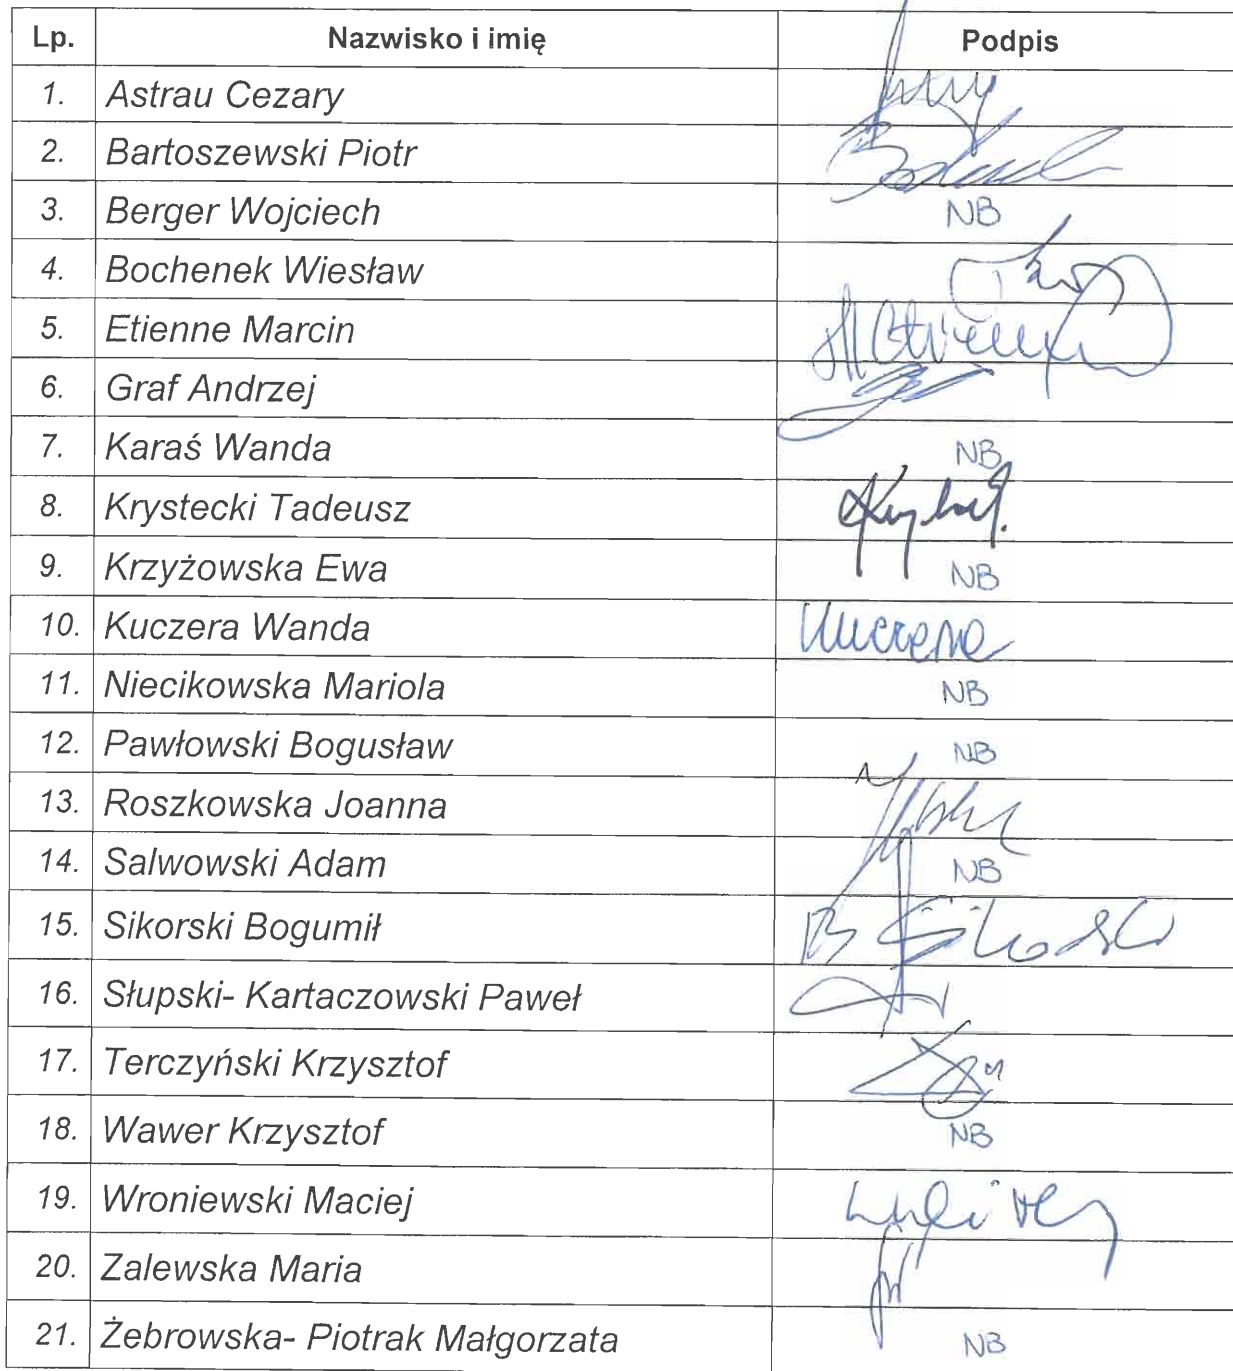 Lp. Nazwisko i imię Podpis
1. Astrau Cezary
2. Bartoszewski Piotr
3. Berger Wojciech NB
4. Bochenek Wiesław
5. Etienne Marcin
6. Graf Andrzej
7. Karaś Wanda NB
8. Krystecki Tadeusz
9. Krzyżowska Ewa NB
10. Kuczera Wanda
11. Niecikowska Mariola NB
12. Pawłowski Bogusław NB
13. Roszkowska Joanna
14. Salwowski Adam NB
15. Sikorski Bogumił B Sikorski
16. Słupski- Kartaczowski Paweł
17. Terczyński Krzysztof
18. Wawer Krzysztof NB
19. Wroniewski Maciej
20. Zalewska Maria
21. Żebrowska- Piotrak Małgorzata NB